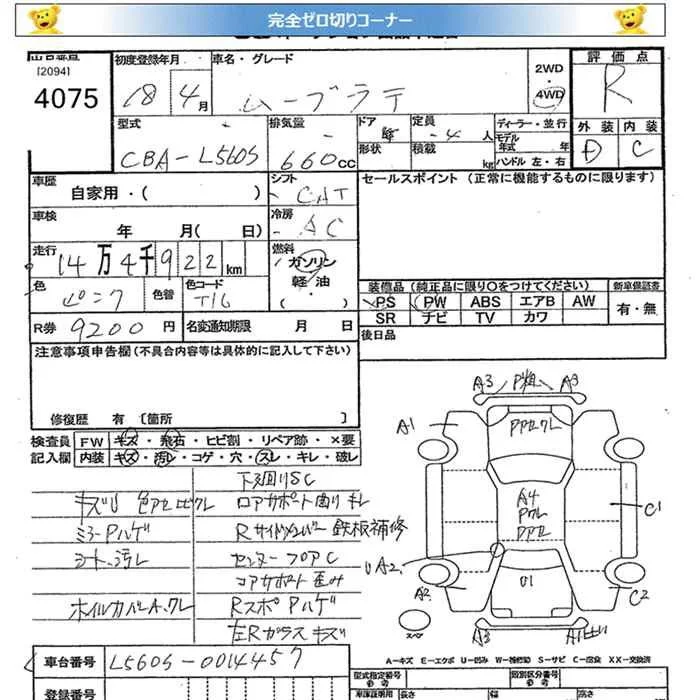 完全ゼロ切りコーナー
[2094]
4075
初度登録年月
18年4月
車名・グレード
ムーブラテ
2WD
4WD
評価点
R
外装 内装
D C
型式
CBA-L560S
排気量
660cc
ドア
形状
定員
-4人
積載
kg
ディーラー・並行
モデル年式 年
ハンドル 左・右
車歴
自家用・( )
シフト
CAT
セールスポイント(正常に機能するものに限ります)
車検
年 月( 日)
冷房
AC
走行
14万4千922km
燃料
ガソリン
軽油
色
ピンク
色替
色コード
T16
R券 9200円
名変通知期限 月 日
装備品(純正品に限り○をつけてください)
新車保証書
PS PW ABS エアB AW
SR ナビ TV カワ
有・無
後日品
注意事項申告欄(不具合内容等は具体的に記入して下さい)
修復歴 有 [箇所 ]
検査員記入欄
FW キズ・飛石・ヒビ割・リペア跡・×要
内装 キズ・汚レ・コゲ・穴・スレ・キレ・破レ
下回りSC
キズU 色アセ ヒビワレ
コアサポート曲り キレ
ミラーPハゲ
Rサイドメンバー 鉄板補修
シート汚レ
センターフロアC
コアサポート歪み
ホイルカバーA.ワレ
RスポPハゲ
左Rガラスキズ
A3 P粗 A3
A1
PPセワレ
A4
Pワレ
PPセ
C1
UA2
A2
U1
C2
スペア
A3
車台番号
L560S-0014457
A-キズ E-エクボ U-凹み W-補修跡 S-サビ C-腐食 XX-交換済
型式指定番号
参考
類別区分番号
参考
車庫証明用
長さ
幅
高さ
登録番号